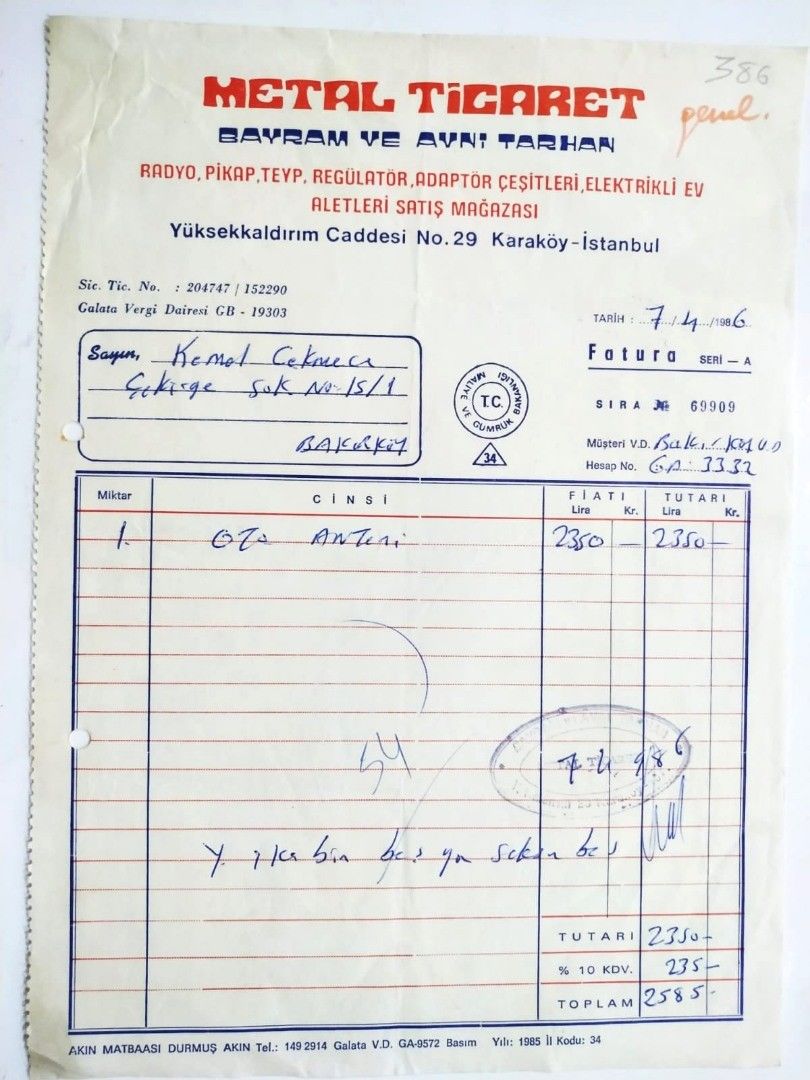 386
genel.
METAL TİCARET
BAYRAM VE AVNİ TARHAN
RADYO, PİKAP, TEYP, REGÜLATÖR, ADAPTÖR ÇEŞİTLERİ, ELEKTRİKLİ EV
ALETLERİ SATIŞ MAĞAZASI
Yüksekkaldırım Caddesi No. 29 Karaköy-İstanbul
Sic. Tic. No. : 204747 / 152290
Galata Vergi Dairesi GB - 19303
TARİH : 7/4/1986
Sayın, Kemal
Sok No 15/1
BAKIRKÖY
T.C.
MALİYE VE GÜMRÜK BAKANLIĞI
34
Fatura SERİ — A
SIRA № 69909
Müşteri V.D. Bakırköy V.D
Hesap No. GA. 3332
Miktar CİNSİ FİATI TUTARI
Lira Kr. Lira Kr.
1. OTO ANTENİ 2350 — 2350 —
54
7 4 986
Y. iki bin beş yüz seksen beş
TUTARI 2350-
% 10 KDV. 235-
TOPLAM 2585-
AKIN MATBAASI DURMUŞ AKIN Tel.: 149 2914 Galata V.D. GA-9572 Basım Yılı: 1985 İl Kodu: 34